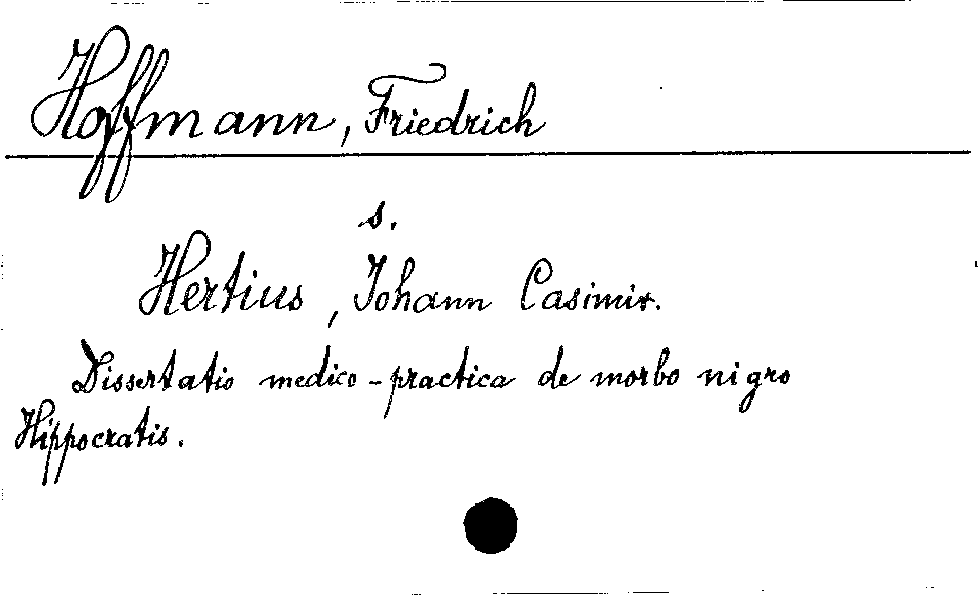 Hoffmann, Friedrich
s.
Hertius, Johann Casimir.
Dissertatio medico-practica de morbo nigro
Hippocratis.